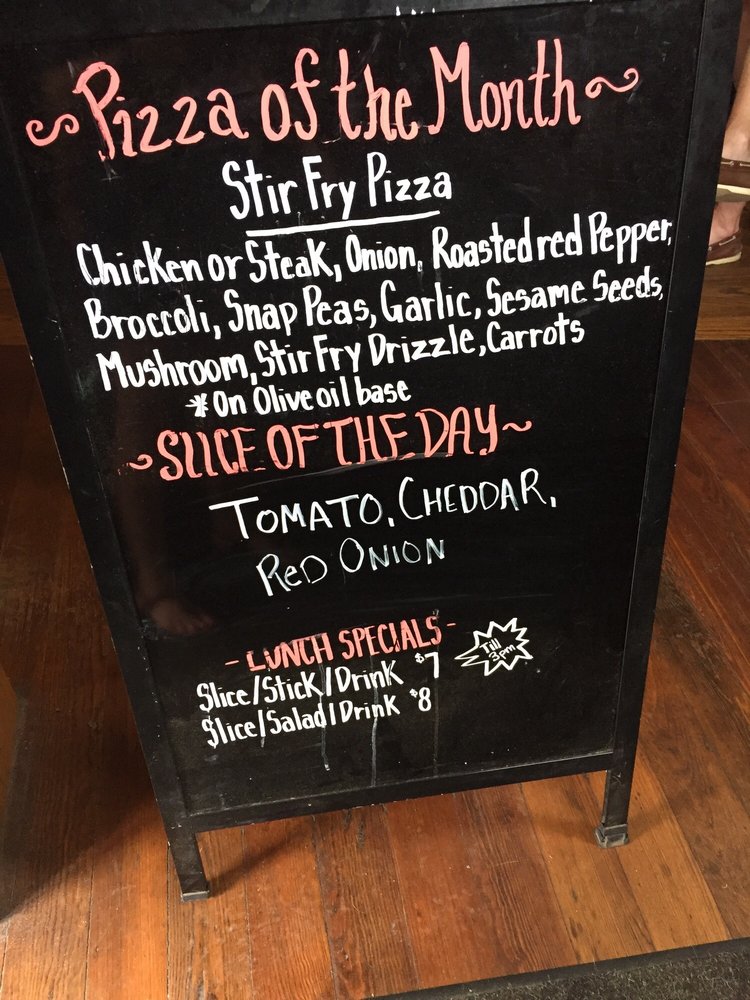 ~Pizza of the Month~
Stir Fry Pizza
Chicken or Steak, Onion, Roasted red Pepper,
Broccoli, Snap Peas, Garlic, Sesame Seeds,
Mushroom, Stir Fry Drizzle, Carrots
*On Olive oil base
~SLICE OF THE DAY~
TOMATO, CHEDDAR,
ReD ONION
- LUNCH SPECIALS -
Slice/Stick/Drink $7
Till
3pm
Slice/Salad/Drink $8